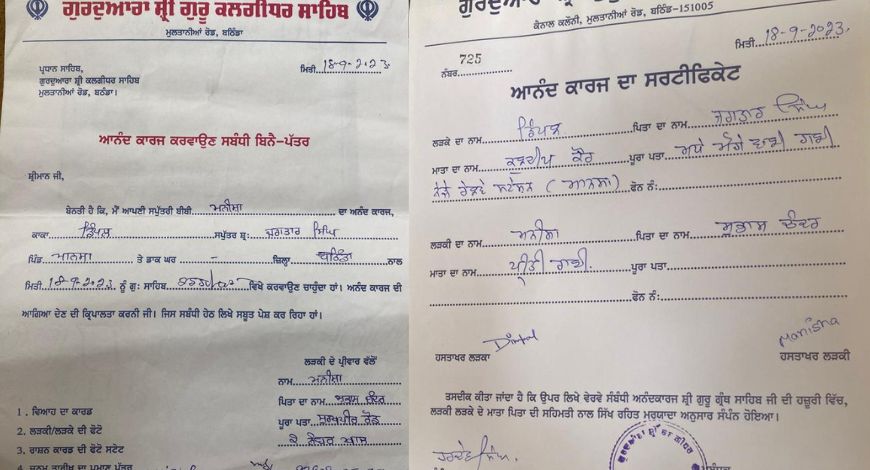 ਗੁਰਦੁਆਰਾ ਸ਼੍ਰੀ ਗੁਰੂ ਕਲਗੀਧਰ ਸਾਹਿਬ
ਮੁਲਤਾਨੀਆਂ ਰੋਡ, ਬਠਿੰਡਾ
ਪ੍ਰਧਾਨ ਸਾਹਿਬ,
ਮਿਤੀ 18-9-2023
ਗੁਰਦੁਆਰਾ ਸ਼੍ਰੀ ਕਲਗੀਧਰ ਸਾਹਿਬ
ਮੁਲਤਾਨੀਆਂ ਰੋਡ, ਬਠਿੰਡਾ।
ਆਨੰਦ ਕਾਰਜ ਕਰਵਾਉਣ ਸਬੰਧੀ ਬਿਨੈ-ਪੱਤਰ
ਸ਼੍ਰੀਮਾਨ ਜੀ,
ਬੇਨਤੀ ਹੈ ਕਿ, ਮੈਂ ਆਪਣੀ ਸਪੁੱਤਰੀ ਬੀਬੀ ਮਨੀਸ਼ਾ ਦਾ ਅਨੰਦ ਕਾਰਜ,
ਕਾਕਾ ਡਿੰਪਲ ਸਪੁੱਤਰ ਸ੍ਰ: ਜਗਤਾਰ ਸਿੰਘ
ਪਿੰਡ ਮਾਨਸਾ ਤੇ ਡਾਕ ਘਰ - ਜ਼ਿਲ੍ਹਾ ਬਠਿੰਡਾ ਨਾਲ
ਮਿਤੀ 18-9-2023 ਨੂੰ ਗੁ: ਸਾਹਿਬ ਵਿਖੇ ਕਰਵਾਉਣ ਚਾਹੁੰਦਾ ਹਾਂ। ਅਨੰਦ ਕਾਰਜ ਦੀ
ਆਗਿਆ ਦੇਣ ਦੀ ਕ੍ਰਿਪਾਲਤਾ ਕਰਨੀ ਜੀ। ਜਿਸ ਸਬੰਧੀ ਹੇਠ ਲਿਖੇ ਸਬੂਤ ਪੇਸ਼ ਕਰ ਰਿਹਾ ਹਾਂ।
ਲੜਕੀ ਦੇ ਪ੍ਰੀਵਾਰ ਵੱਲੋਂ
ਨਾਮ ਮਨੀਸ਼ਾ
ਪਿਤਾ ਦਾ ਨਾਮ ਸੁਭਾਸ਼ ਚੰਦਰ
ਪੂਰਾ ਪਤਾ ਰੋਡ
1 . ਵਿਆਹ ਦਾ ਕਾਰਡ
2. ਲੜਕੀ/ਲੜਕੇ ਦੀ ਫੋਟੋ
3. ਰਾਸ਼ਨ ਕਾਰਡ ਦੀ ਫੋਟੋ ਸਟੇਟ
4. ਜਨਮ ਤਾਰੀਖ ਦਾ ਪ੍ਰਮਾਣ ਪੱਤਰ
ਕੈਨਾਲ ਕਲੋਨੀ, ਮੁਲਤਾਨੀਆਂ ਰੋਡ, ਬਠਿੰਡਾ-151005
ਮਿਤੀ 18-9-2023
725
ਨੰਬਰ
ਆਨੰਦ ਕਾਰਜ ਦਾ ਸਰਟੀਫਿਕੇਟ
ਲੜਕੇ ਦਾ ਨਾਮ ਡਿੰਪਲ ਪਿਤਾ ਦਾ ਨਾਮ ਜਗਤਾਰ ਸਿੰਘ
ਮਾਤਾ ਦਾ ਨਾਮ ਕੁਲਦੀਪ ਕੌਰ ਪੂਰਾ ਪਤਾ ਗਲੀ
ਨੇੜੇ ਰੇਲਵੇ ਸਟੇਸ਼ਨ (ਮਾਨਸਾ) ਫੋਨ ਨੰ:
ਲੜਕੀ ਦਾ ਨਾਮ ਮਨੀਸ਼ਾ ਪਿਤਾ ਦਾ ਨਾਮ ਸੁਭਾਸ਼ ਚੰਦਰ
ਮਾਤਾ ਦਾ ਨਾਮ ਪ੍ਰੀਤੀ ਰਾਣੀ ਪੂਰਾ ਪਤਾ
ਫੋਨ ਨੰ:
Manisha
ਹਸਤਾਖਰ ਲੜਕਾ ਹਸਤਾਖਰ ਲੜਕੀ
ਤਸਦੀਕ ਕੀਤਾ ਜਾਂਦਾ ਹੈ ਕਿ ਉਪਰ ਲਿਖੇ ਵੇਰਵੇ ਸੰਬੰਧੀ ਅਨੰਦਕਾਰਜ ਸ਼੍ਰੀ ਗੁਰੂ ਗ੍ਰੰਥ ਸਾਹਿਬ ਜੀ ਦੀ ਹਜ਼ੂਰੀ ਵਿੱਚ,
ਲੜਕੀ ਲੜਕੇ ਦੇ ਮਾਤਾ ਪਿਤਾ ਦੀ ਸਹਿਮਤੀ ਨਾਲ ਸਿੱਖ ਰਹਿਤ ਮਰਯਾਦਾ ਅਨੁਸਾਰ ਸੰਪੰਨ ਹੋਇਆ।